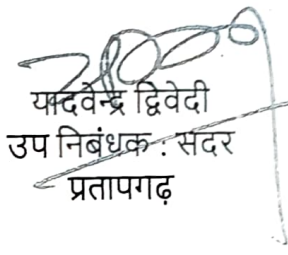 यादवेन्द्र द्विवेदी
उप निबंधक : सदर
प्रतापगढ़